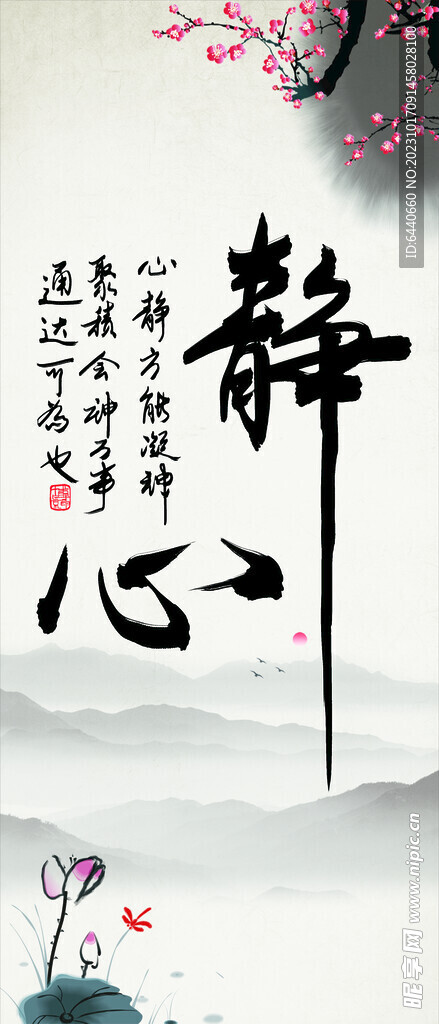 静
心
心静方能凝神
聚精会神万事
通达可为也
ID:6440660 NO:20231017091458028100
昵享网 www.nipic.cn